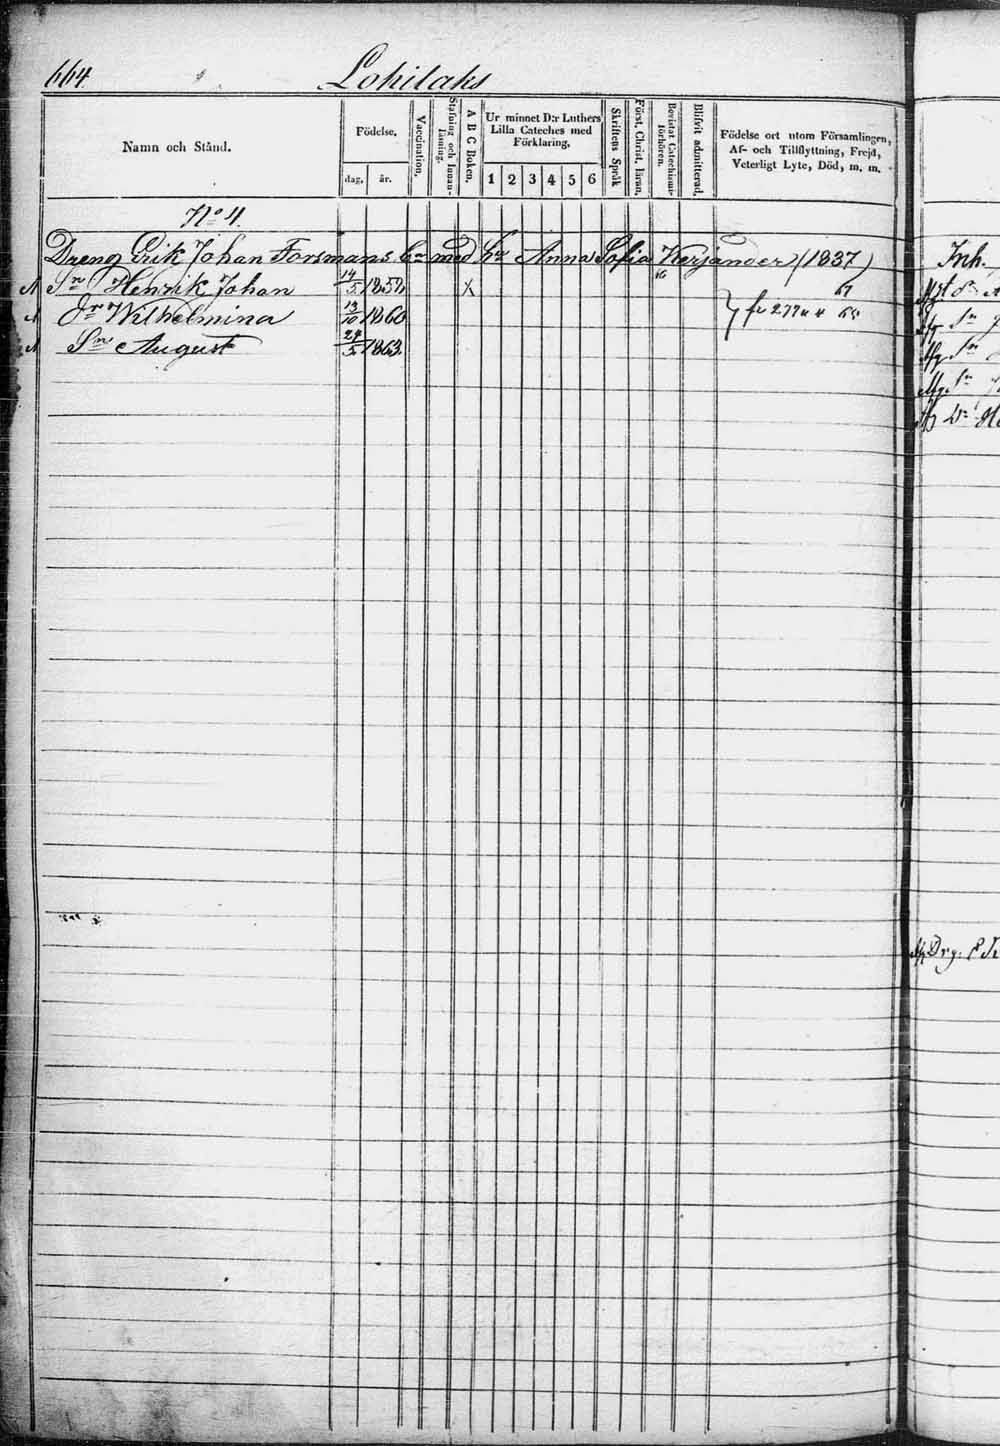 664.
Lohilaks
Namn och Stånd.
Födelse.
dag.
år.
Vaccination.
Stafning och Innan-
läsning.
A B C Boken.
Ur minnet D:r Luthers
Lilla Cateches med
Förklaring.
1 2 3 4 5 6
Skriftens Språk
Först. Christ. läran.
Bevistat Catechismi-
förhören.
Blifvit admitterad.
Födelse ort utom Församlingen,
Af- och Tillflyttning, Frejd,
Veterligt Lyte, Död, m. m.
No 4.
Dreng Erik Johan Forsmans bn med hu Anna Sofia Kerjander (1837)
Sn Henrik Johan 14/5 1858 X
Dr Wilhelmina 13/10 1860
Sn August 24/5 1863.
Inh.